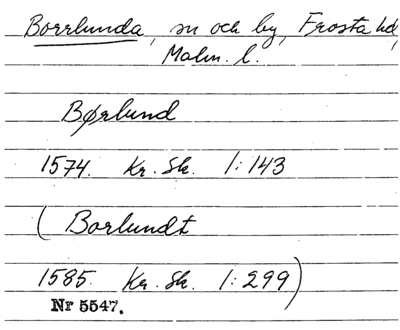 Borrlunda, sn och by, Frosta hd,
Malm. l.
Børlund
1574. Kr. Sk. 1:143
(Borlundt
1585. Kr. Sk. 1:299)
Nr 5547.